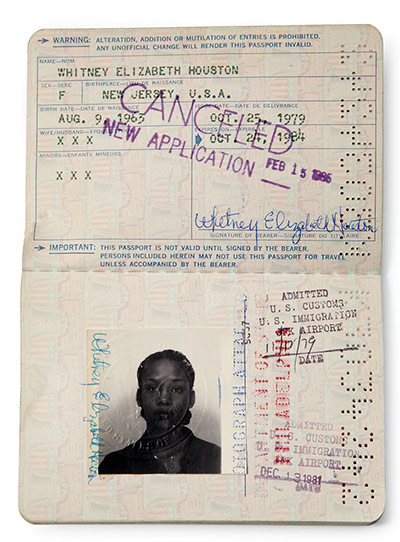 WARNING: ALTERATION, ADDITION OR MUTILATION OF ENTRIES IS PROHIBITED.
ANY UNOFFICIAL CHANGE WILL RENDER THIS PASSPORT INVALID.
NAME—NOM
WHITNEY ELIZABETH HOUSTON
SEX—SEXE BIRTHPLACE—LIEU DE NAISSANCE
F NEW JERSEY, U.S.A.
BIRTH DATE—DATE DE NAISSANCE ISSUE DATE—DATE DE DELIVRANCE
AUG. 9, 1963 OCT. 25, 1979
WIFE/HUSBAND—
X X X OCT. 24, 1984
CANCELED
NEW APPLICATION FEB 15 1985
MINORS—ENFANTS MINEURS
X X X
Whitney Elizabeth Houston
SIGNATURE OF BEARER—SIGNATURE DU TITULAIRE
IMPORTANT: THIS PASSPORT IS NOT VALID UNTIL SIGNED BY THE BEARER.
PERSONS INCLUDED HEREIN MAY NOT USE THIS PASSPORT FOR TRAVEL
UNLESS ACCOMPANIED BY THE BEARER.
Whitney Elizabeth Houston
PHOTOGRAPH ATTACHED
PHILADELPHIA
ADMITTED
U. S. CUSTOMS
U. S. IMMIGRATION
AIRPORT
DATE
ADMITTED
U. S. CUSTOMS
IMMIGRATION
AIRPORT
DEC 13 1981
DATE